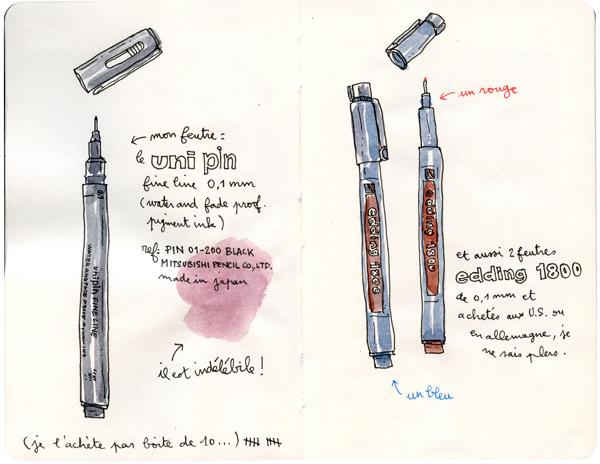 mon feutre :
le uni pin
fine line 0,1 mm
(water and fade proof.
pigment ink)
ref: PIN 01-200 BLACK
MITSUBISHI PENCIL CO, LTD.
made in japan
il est indélébile !
(je l'achète par boîte de 10...)
uni pin FINE LINE
WATER AND FADE PROOF PIGMENT INK
un rouge
edding 1800
edding 1800
et aussi 2 feutres
edding 1800
de 0,1 mm et
achetés aux U.S. ou
en allemagne, je
ne sais plus.
un bleu